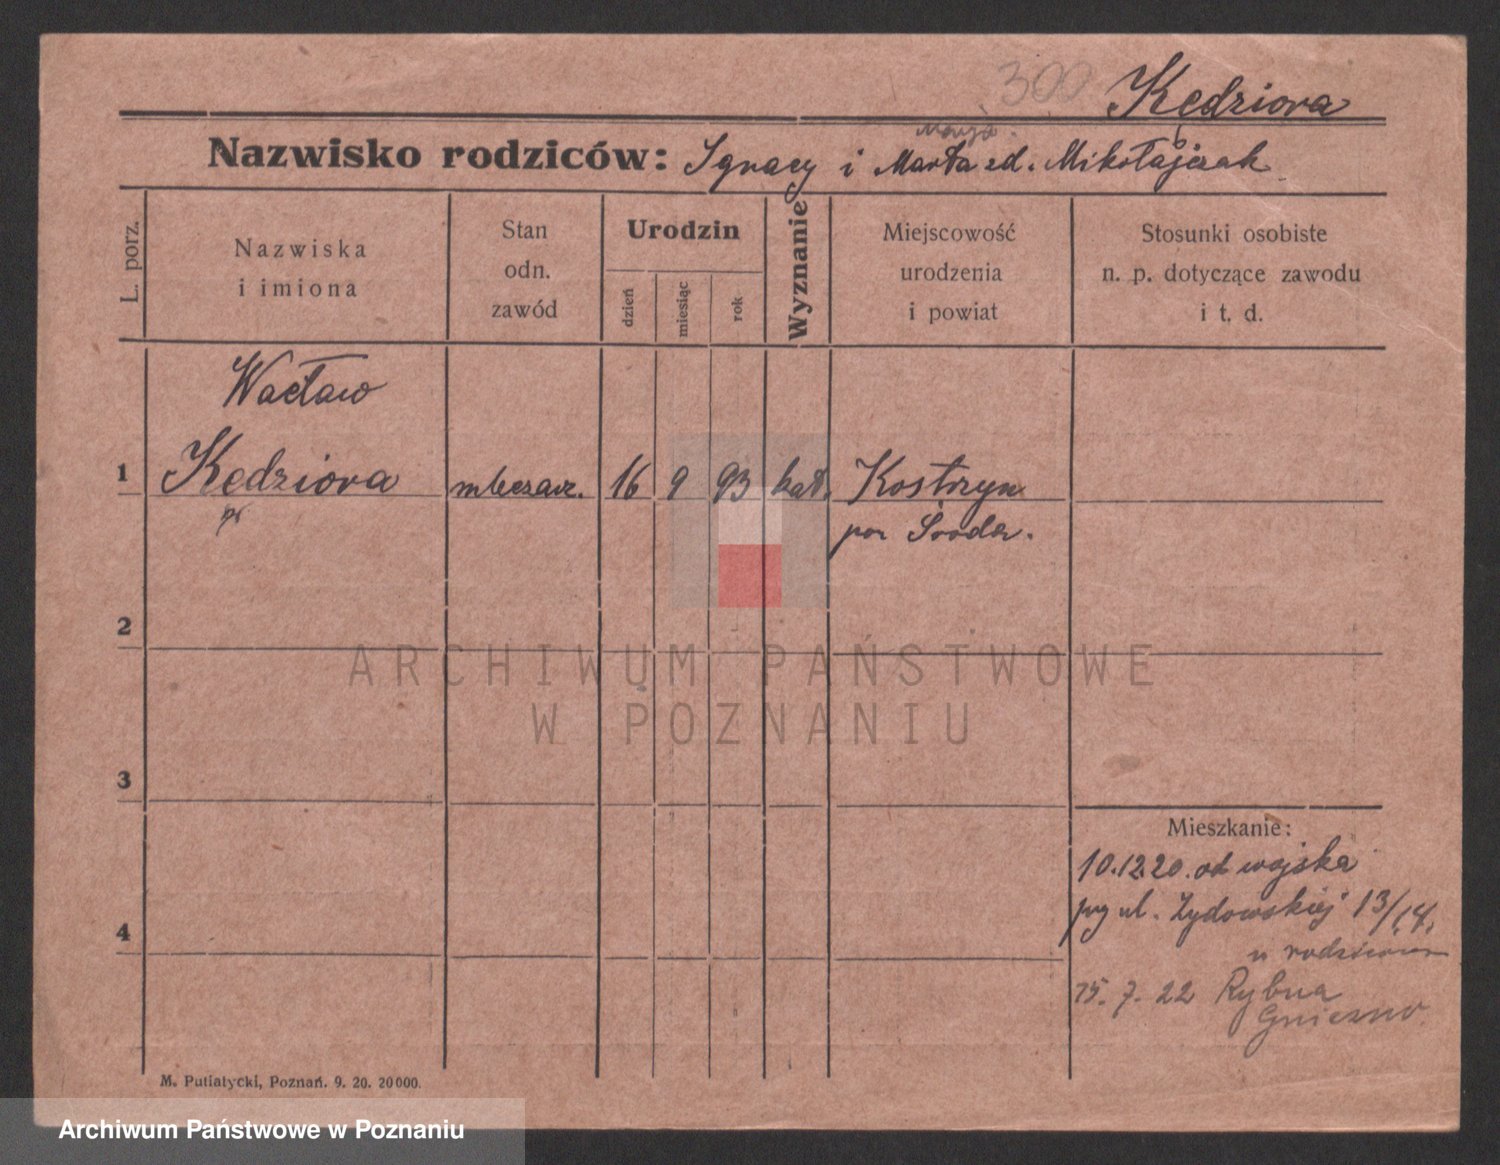 300 Kędziora
Marja.
Nazwisko rodziców: Ignacy i Marta zd. Mikołajczak
L. porz.
Nazwiska
i imiona
Stan
odn.
zawód
Urodzin
dzień
miesiąc
rok
Wyznanie
Miejscowość
urodzenia
i powiat
Stosunki osobiste
n. p. dotyczące zawodu
i t. d.
Wacław
1 Kędziora mleczarz. 16 9 93 kat. Kostrzyn
pow Środa.
2
ARCHIWUM PAŃSTWOWE
W POZNANIU
3
Mieszkanie:
10.12.20. od wojska
4
przy ul. Żydowskiej 13/14.
u rodziców
15. 7. 22 Rybna
Gniezno
M. Putiatycki, Poznań. 9. 20. 20000.
Archiwum Państwowe w Poznaniu